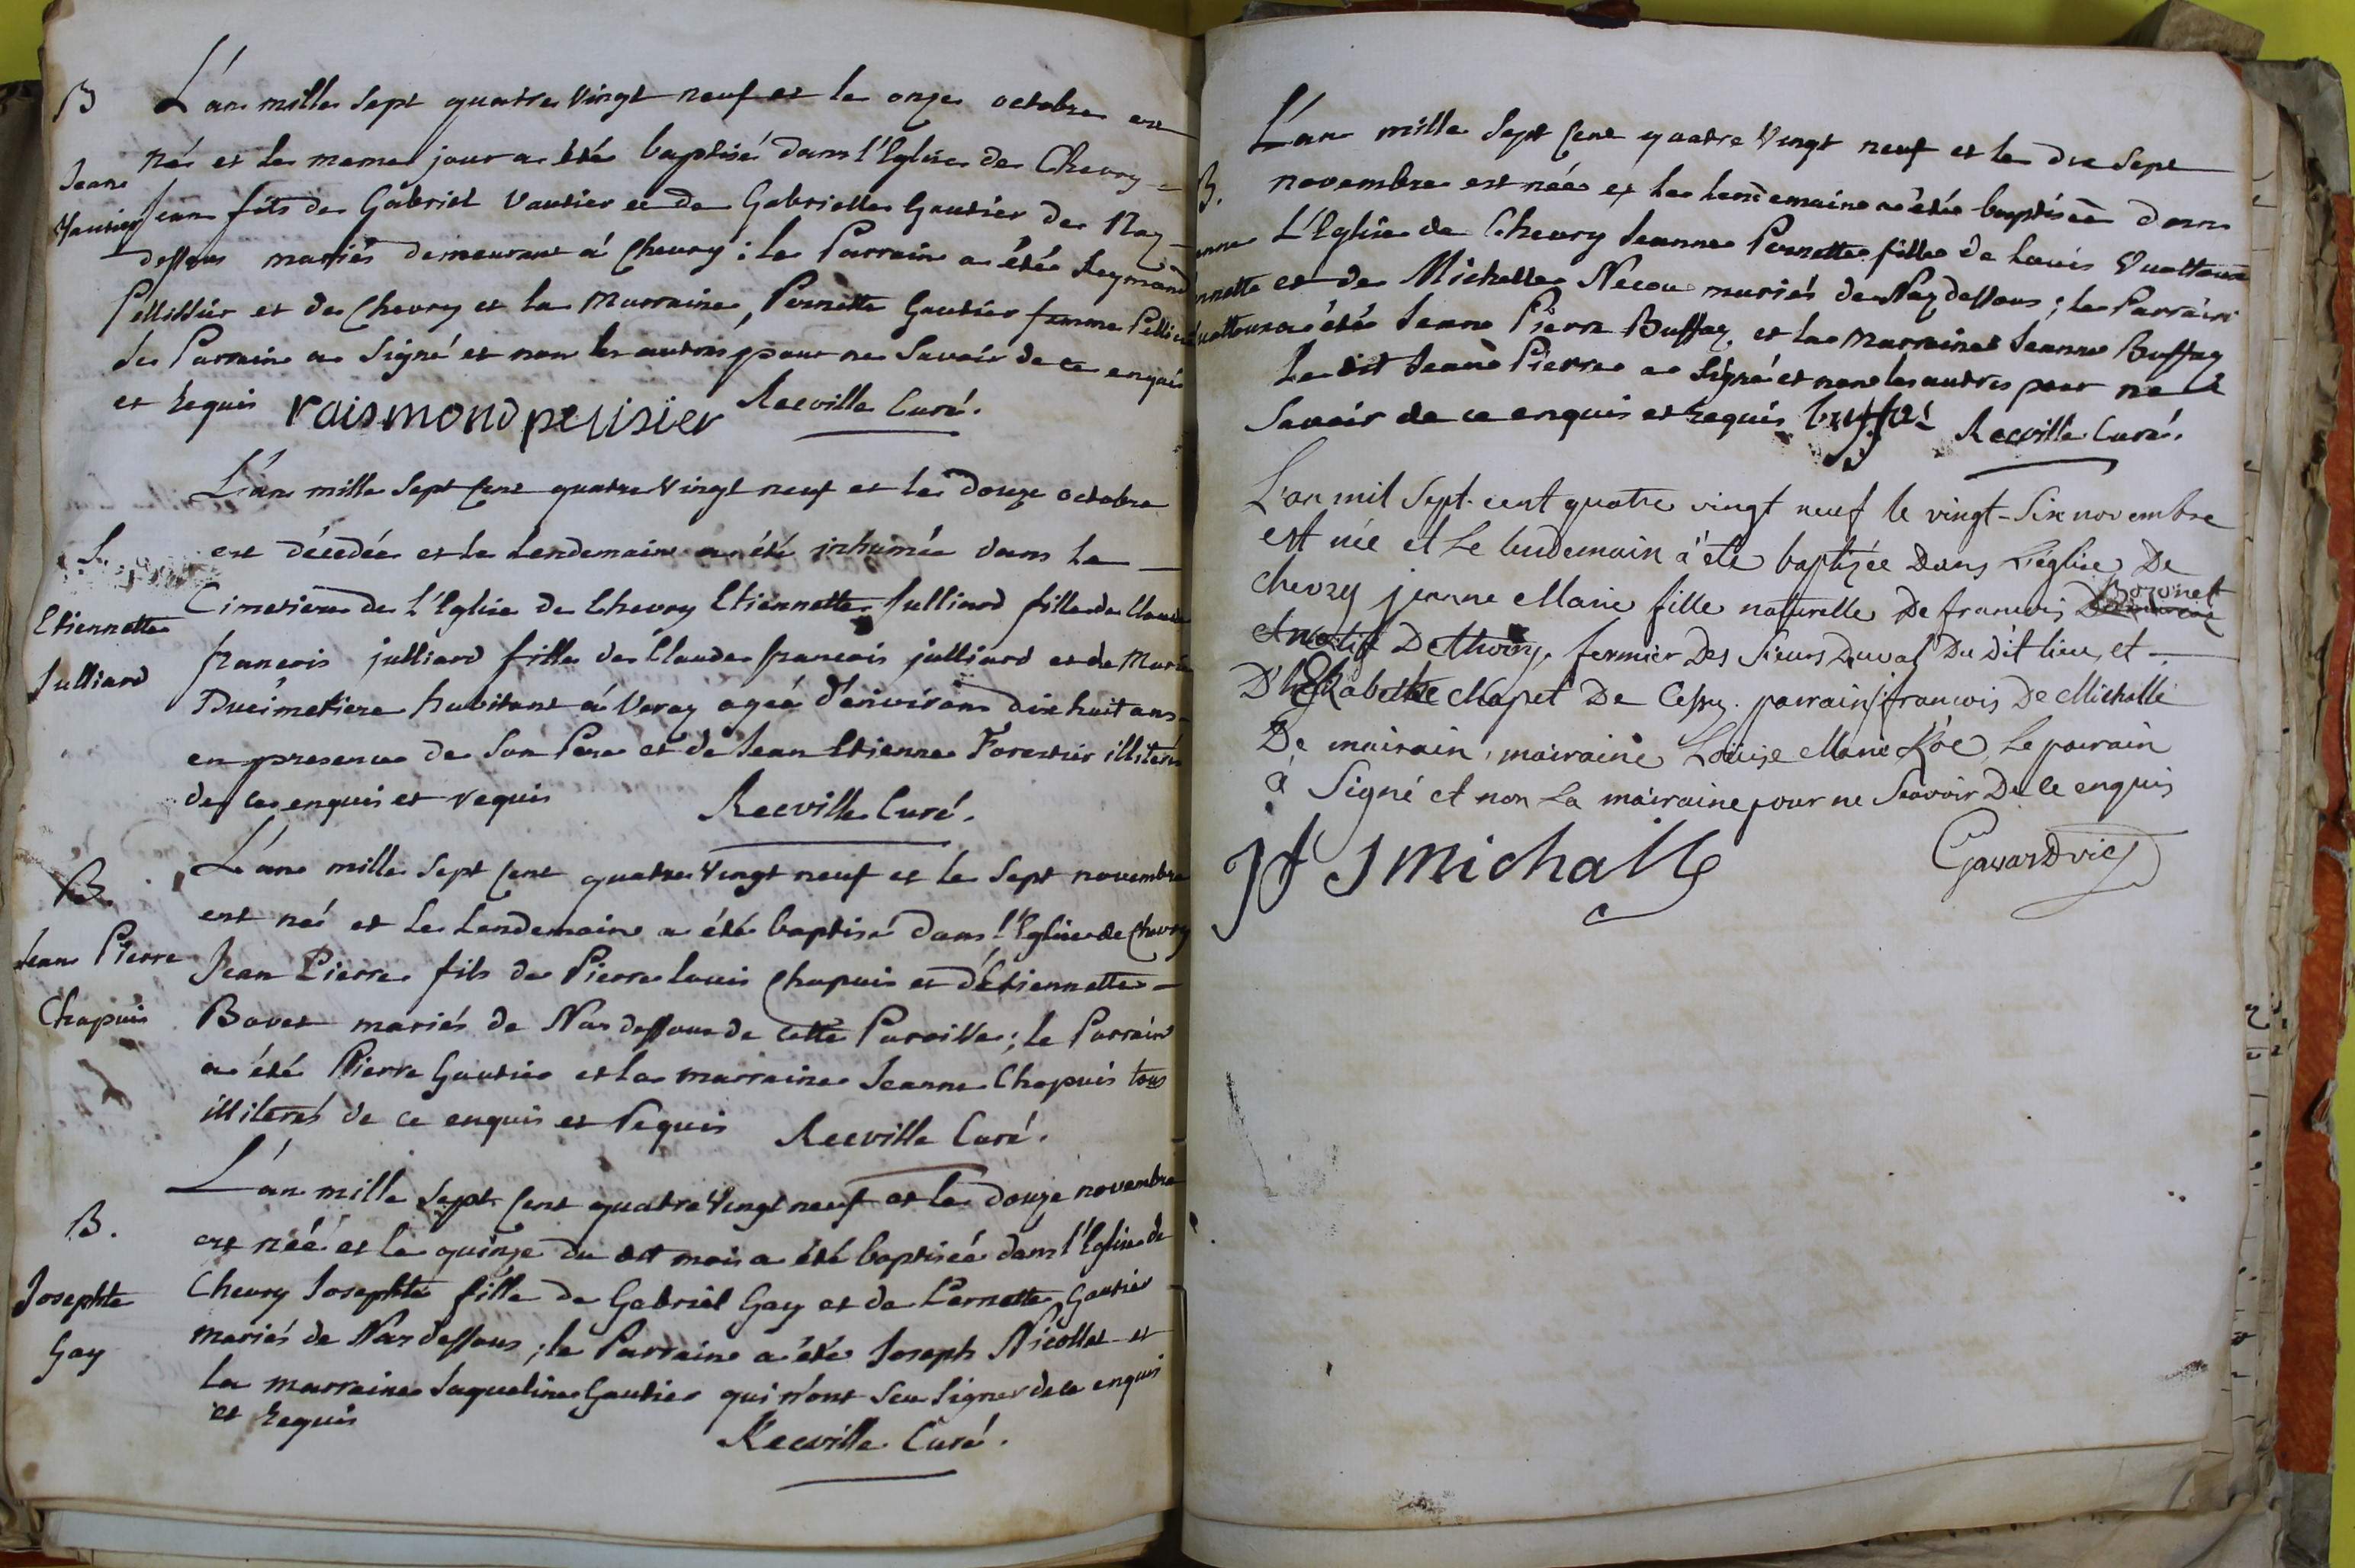 B
L'an mille Sept quatre vingt neuf et le onze octobre est
né et le meme jour a été baptisé dans l'Eglise de Chevry
Jean Vautier
Jean fils de Gabriel Vautier et de Gabrielle Gautier de Naz
dessous mariés demeurant á Chevry ; le Parrain a été Reymond
Pellissiér et de Chevry et la Marraine, Pernette Gautier femme
de Parrain a Signé et non les autres pour ne Savoir de ce enquis
et Requis raismond pelisier Recville Curé.
L'an mille Sept Cent quatre Vingt neuf et le douze octobre
S.
est décedée et le Lendemain a été inhumée dans le
Cimetiere de L'Eglise de Chevry Etiennette Julliard fille de Claude
Etiennette
Julliard
francois julliard fille de Claude francois julliard et de Marie
Ducimetiere habitant á Veray agée d'environ dix huit ans
en presence de Son Pere et de Jean Etienne Forestier illiterés
de ce enquis et requis Recville Curé.
L'an mille Sept Cent quatre Vingt neuf et le Sept novembre
B.
est né et le Lendemain a été baptisé dans l'Eglise de Chevry
Jean Pierre
Chapuis
Jean Pierre fils de Pierre Louis Chapuis et d'Etiennette
Bovet mariés de Naz dessous de cette Paroisse ; le Parrain
a été Pierre Gautier et la marraine Jeanne Chapuis tous
illiterés de ce enquis et Requis Recville Curé.
L'an mille Sept Cent quatre Vingt neuf et le douze novembre
B.
est née et le quinze du dit mois a été baptisée dans l'Eglise de
Josephte
Gay
Chevry Josephte fille de Gabriel Gay et de Pernette Gautier
mariés de Naz dessous ; le Parraine a été Joseph Nicollet et
la marraine Jaqueline Gautier qui n'ont Seu Signer de ce enquis
et Requis
Recville Curé.
L'an mille Sept Cent quatre Vingt neuf et le dix Sept
B.
novembre est née et le lendemain a été baptisée dans
L'Eglise de Chevry Jeanne Pernette fille de Louis Vuattoux
et de Michelle Necou mariés de Naz dessous ; le Parrain
a été Jean Pierre Buffay et la Marraine Jeanne Buffay
Le dit Jean Pierre a Signé et non les autres pour ne
Savoir de ce enquis et Requis buffai Recville Curé.
L'an mil Sept cent quatre vingt neuf le vingt-Six novembre
est née et Le lendemain à été baptizée Dans L'église De
chevry jeanne Marie fille naturelle De francois Bozonet
fermier Des Sieurs Duval Du Dit lieu, et
D'Elizabethe Chapet De Cessy. parrain francois De Michalle
De mairain, mairaine Loüise Marie Roc, Le parrain
à Signé et non La mairaine pour ne Scavoir De ce enquis
jf J michalle Gavard vic